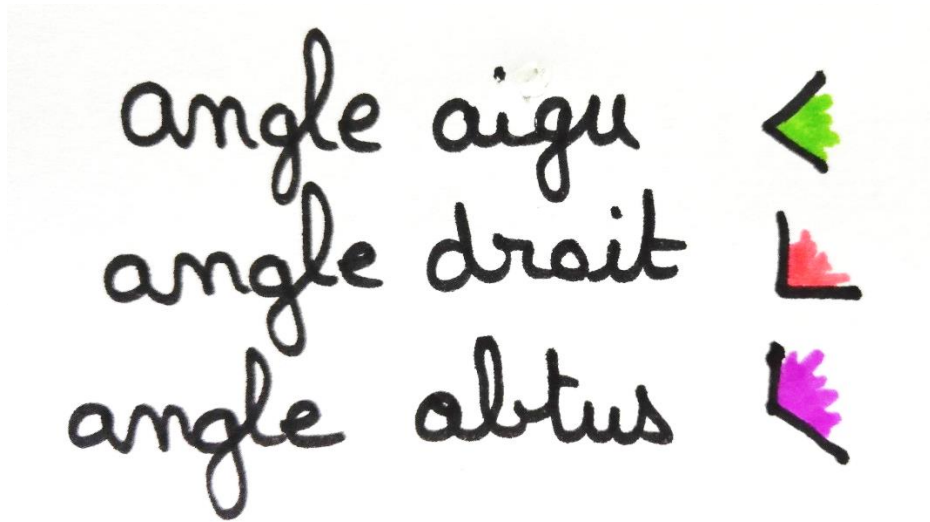 angle aigu
angle droit
angle obtus